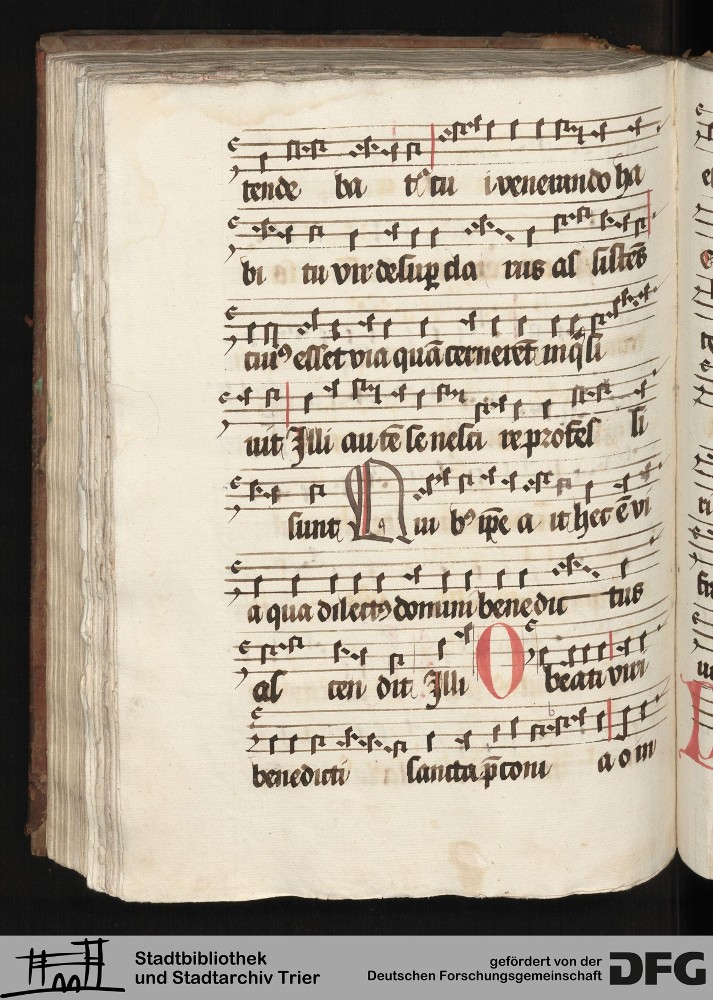 tende ba tr cu i venerando ha
bi tu vir desup cla rus as sistēs
cuiꝯ esset via quā cernerēt inqͥsi
uit Illi autē se nesci re profes si
sunt Qui bꝯ ipse a it hec ē vi
a qua dilectꝯ domini benedic tus
as cen dit Illi O beati viri
benedicti sancta p̄coni a o in
Stadtbibliothek
und Stadtarchiv Trier
gefördert von der
Deutschen Forschungsgemeinschaft
DFG